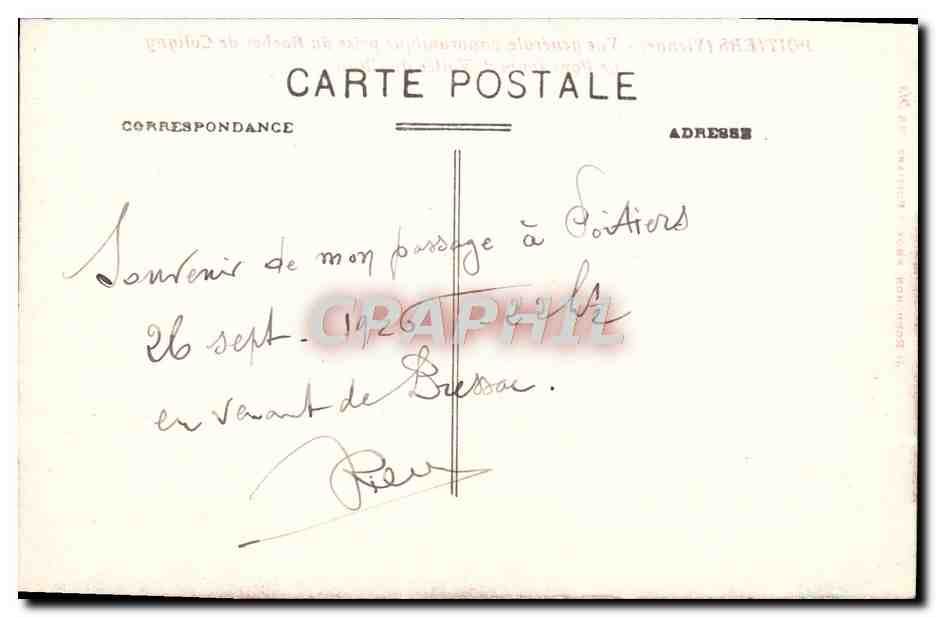 POITIERS (Vienne) - Vue générale panoramique prise du Rocher de Coligny
CARTE POSTALE
CORRESPONDANCE
ADRESSE
Souvenir de mon passage à Poitiers
26 sept. 1926 - 22h½
en venant de Bressac.
CPAPHIL